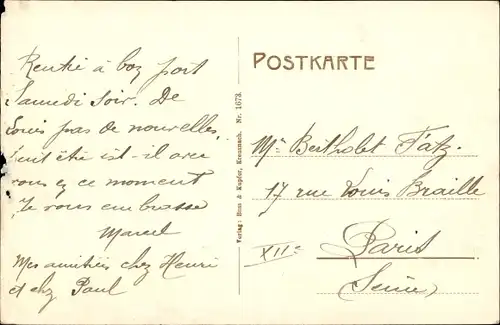 Rentré à bon port
Samedi soir. De
Louis pas de nouvelles,
peut être est-il avec
vous en ce moment
Je vous embrasse
Marcel
Mes amitiés chez Henri
et chez Paul
Verlag: Hess & Kupfer, Kreuznach. Nr. 1673.
POSTKARTE
Mr Bertholet Fatz.
17 rue Louis Braille
XIIe Paris
(Seine)